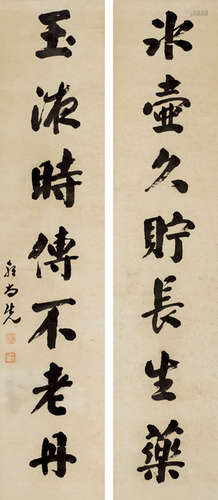 冰壺久貯長生藥
玉液時傳不老丹